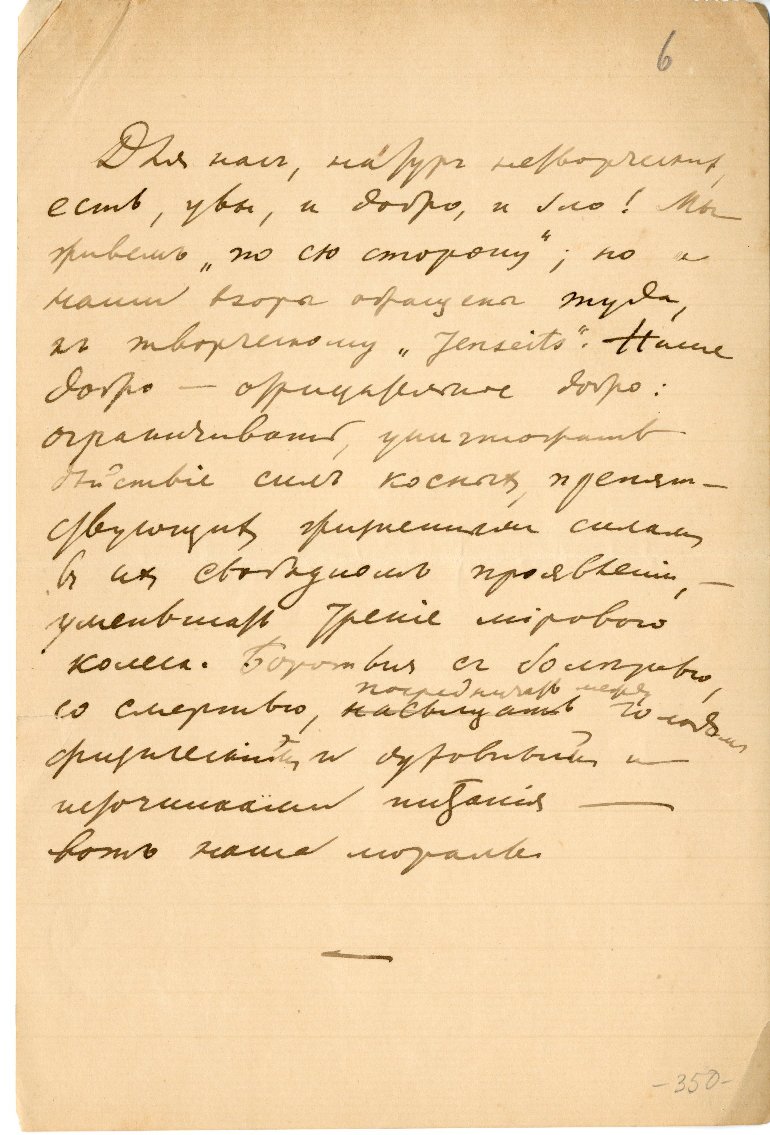 6
Для насъ, натуръ нетворческихъ,
есть, увы, и добро, и зло! Мы
живемъ „по сю сторону“; но и
наши взоры обращены туда,
къ творческому „Jenseits“. Наше
добро — отрицательное добро:
ограничивать, уничтожать
дѣйствіе силъ косныхъ, препят-
ствующихъ жизненнымъ силамъ
въ ихъ свободномъ проявленіи, —
уменьшать треніе мірового
колеса. Бороться съ болѣзнью,
со смертью, насыщать голодомъ
посредничать между
физическимъ и духовнымъ и
источниками питанія —
вотъ наша мораль.
—
-350-